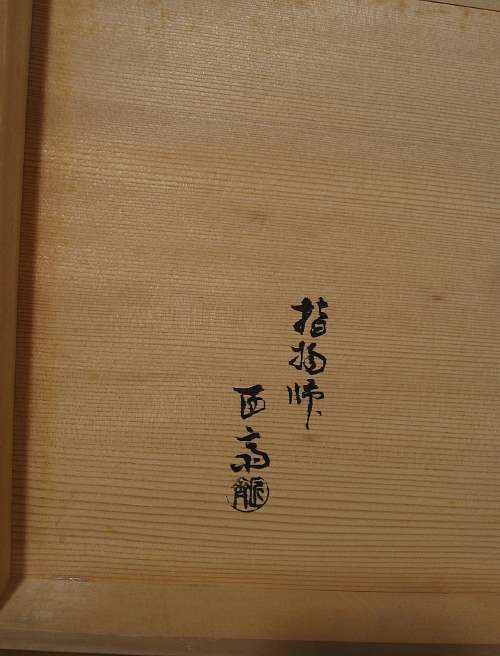 指物師
西斎